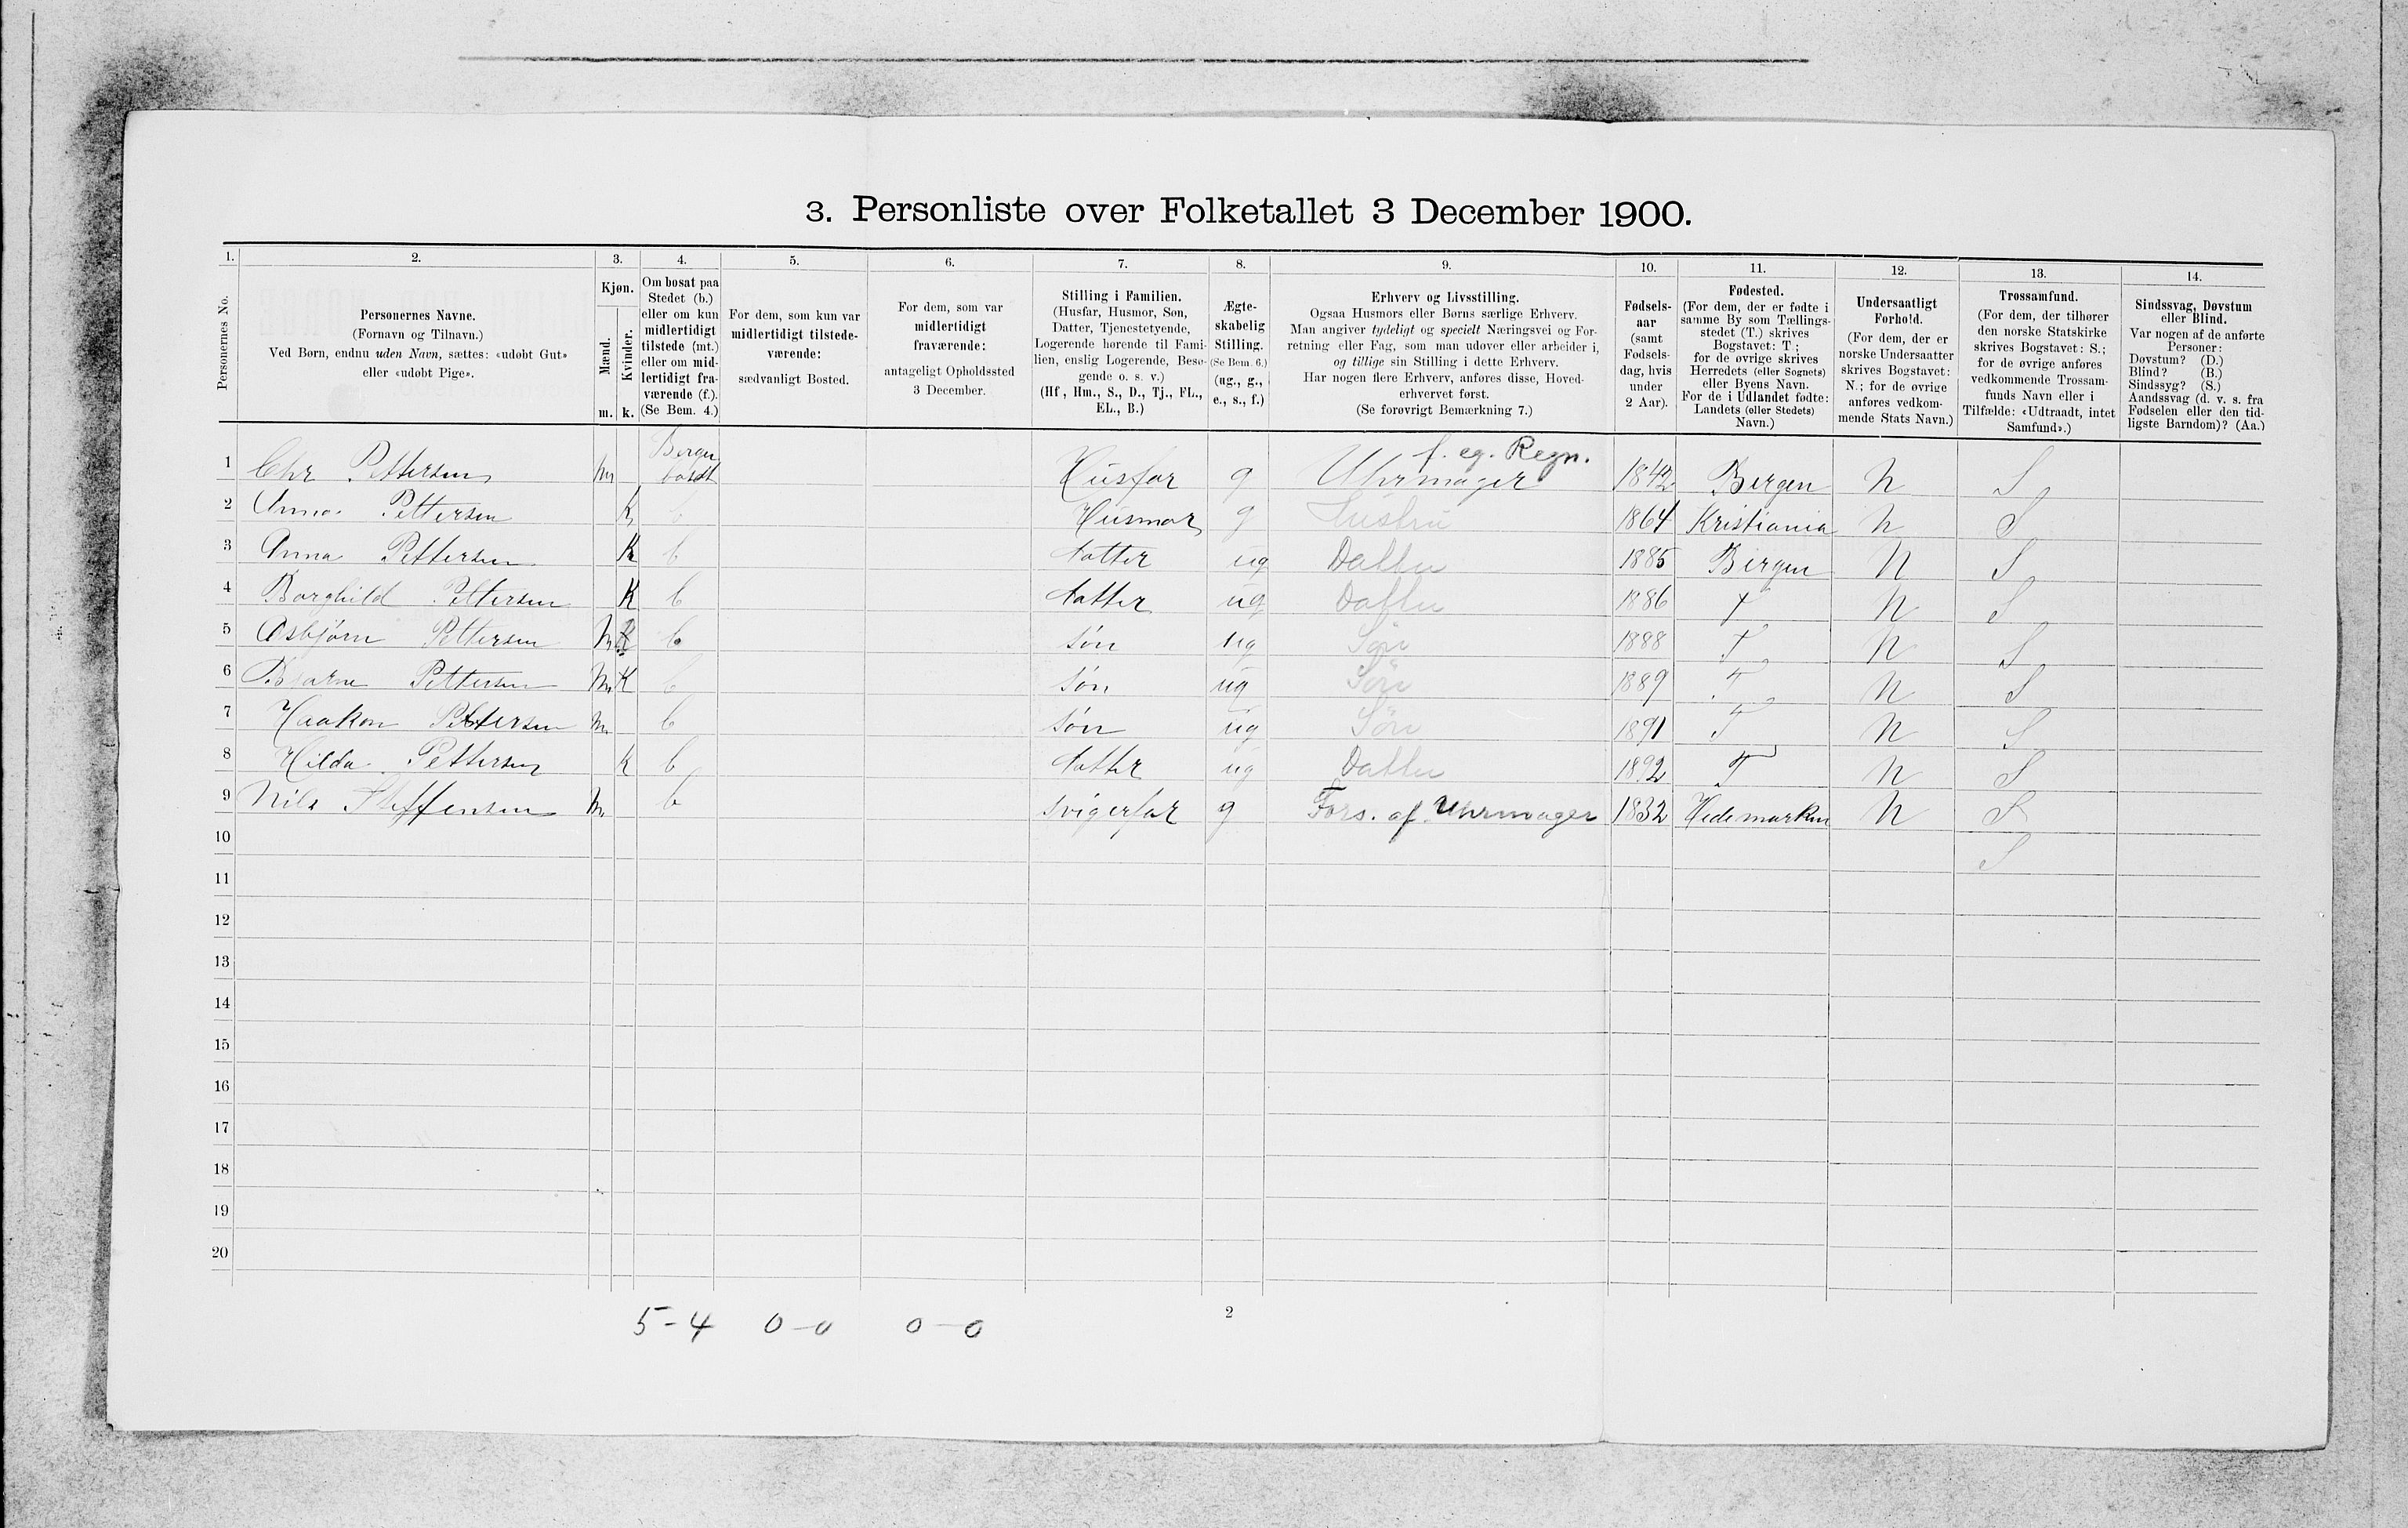 3. Personliste over Folketallet 3 December 1900.
1. 2. 3. 4. 5. 6. 7. 8. 9. 10. 11. 12. 13. 14.
Personernes No.
Personernes Navne.
(Fornavn og Tilnavn.)
Ved Børn, endnu uden Navn, sættes: «udøbt Gut»
eller «udøbt Pige».
Kjøn.
Mænd.
Kvinder.
m. k.
Om bosat paa
Stedet (b.)
eller om kun
midlertidigt
tilstede (mt.)
eller om mid-
lertidigt fra-
værende (f.).
(Se Bem. 4.)
For dem, som kun var
midlertidigt tilstede-
værende:
sædvanligt Bosted.
For dem, som var
midlertidigt
fraværende:
antageligt Opholdssted
3 December.
Stilling i Familien.
(Husfar, Husmor, Søn,
Datter, Tjenestetyende,
Logerende hørende til Fami-
lien, enslig Logerende, Besø-
gende o. s. v.)
(Hf, Hm., S., D., Tj., FL.,
EL., B.)
Ægte-
skabelig
Stilling.
(Se Bem. 6.)
(ug., g.,
e., s., f.)
Erhverv og Livsstilling.
Ogsaa Husmors eller Børns særlige Erhverv.
Man angiver tydeligt og specielt Næringsvei og For-
retning eller Fag, som man udøver eller arbeider i,
og tillige sin Stilling i dette Erhverv.
Har nogen flere Erhverv, anføres disse, Hoved-
erhvervet først.
(Se forøvrigt Bemærkning 7.)
Fødsels-
aar
(samt
Fødsels-
dag, hvis
under
2 Aar).
Fødested.
(For dem, der er fødte i
samme By som Tællings-
stedet (T.) skrives
Bogstavet: T;
for de øvrige skrives
Herredets (eller Sognets)
eller Byens Navn.
For de i Udlandet fødte:
Landets (eller Stedets)
Navn.)
Undersaatligt
Forhold.
(For dem, der er
norske Undersaatter
skrives Bogstavet:
N.; for de øvrige
anføres vedkom-
mende Stats Navn.)
Trossamfund.
(For dem, der tilhører
den norske Statskirke
skrives Bogstavet: S.;
for de øvrige anføres
vedkommende Trossam-
funds Navn eller i
Tilfælde: «Udtraadt, intet
Samfund».)
Sindssvag, Døvstum
eller Blind.
Var nogen af de anførte
Personer:
Døvstum? (D.)
Blind? (B.)
Sindssyg? (S.)
Aandssvag (d. v. s. fra
Fødselen eller den tid-
ligste Barndom)? (Aa.)
Bergen f. eg. Regn.
1 Chr Pettersen m bosat Husfar g Uhrmager 1842 Bergen N S
2 Anna Pettersen K b Husmor g Hustru 1864 Kristiania N S
3 Anna Pettersen K b datter ug Datter 1885 Bergen N S
4 Borghild Pettersen K b datter ug Datter 1886 T N S
5 Asbjørn Pettersen m K b søn ug Søn 1888 T N S
6 Bjarne Pettersen m K b søn ug Søn 1889 T N S
7 Haakon Pettersen m b søn ug Søn 1891 T N S
8 Hilda Pettersen K b datter ug Datter 1892 T N S
9 Nils Steffensen m b svigerfar g Fors. af Uhrmager 1832 Hedemarken N S
10 S
11
12
13
14
15
16
17
18
19
20
5-4 0-0 0-0
2